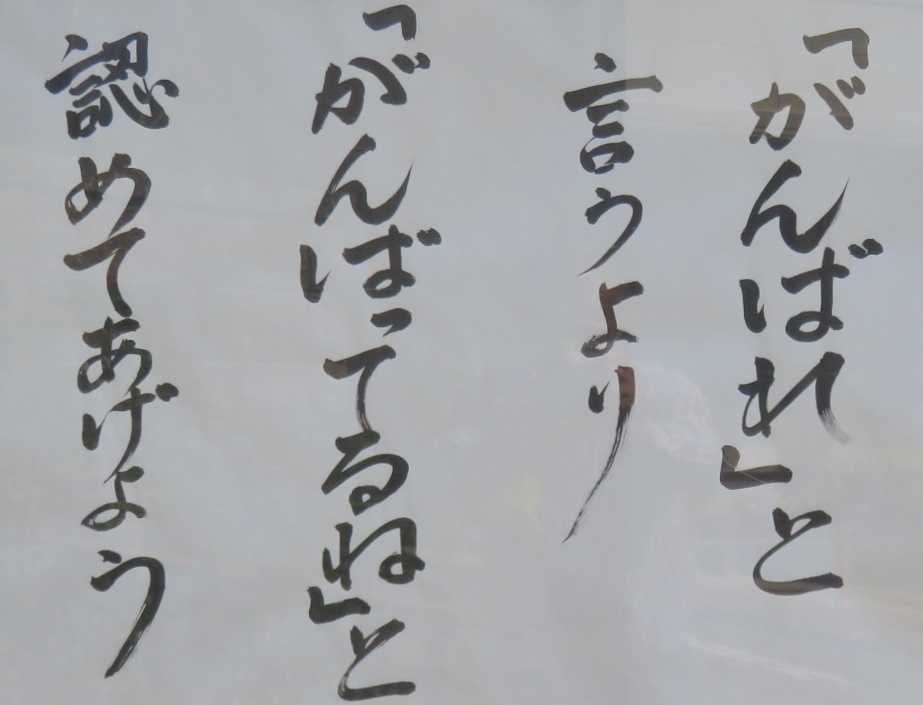 「がんばれ」と
言うより
「がんばってるね」と
認めてあげよう